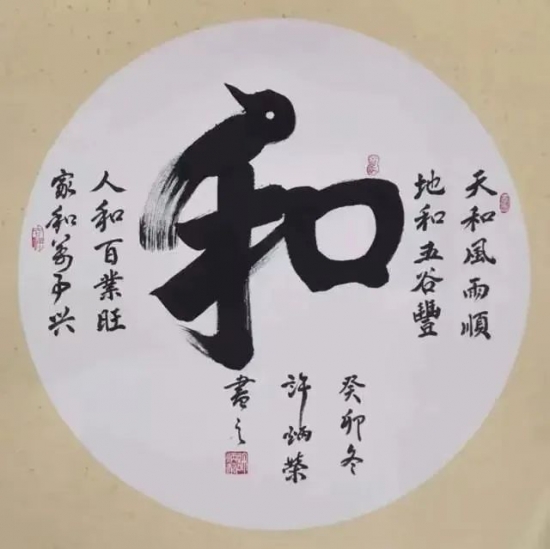 和
天和風雨順
地和五谷豐
人和百業旺
家和万事兴
癸卯冬
許炳榮
書之